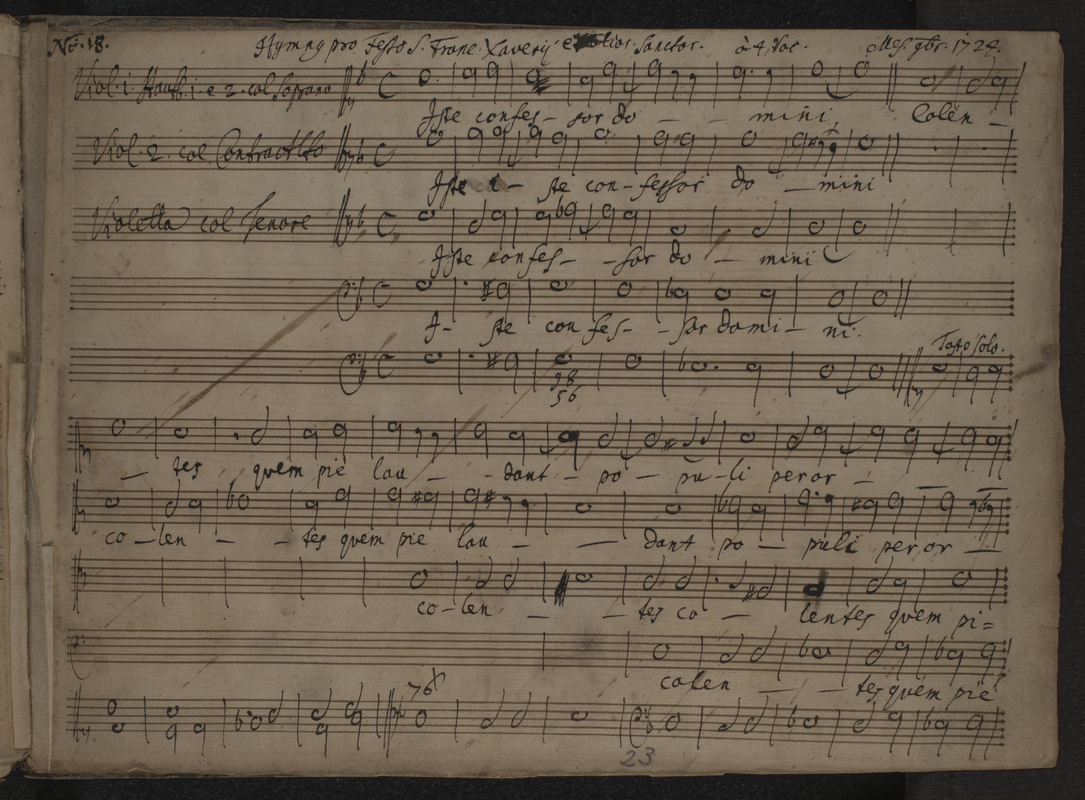 No. 18. Hymny pro Festo S. Franc. Xaverij e Sanctor. à 4 Voc. Mes. 9br. 1724.
Viol. 1. Hautb. 1. e 2. col Soprano
Iste confes- sor do - - mini, Colen -
Viol. 2. col Contraalto
Iste i- ste con-fessor do - mini
Violetta col Tenore
Iste confes- - sor do - mini
I- ste con fes- - sor domi- ni.
Tasto solo.
98
56
- tes quem pie lau - - dant - po - pu-li peror - - -
co-len - - tes quem pie lau - - dant po - puli peror -
co-len - - tes co - lentes quem pi=
colen - - tes quem pie
76
23